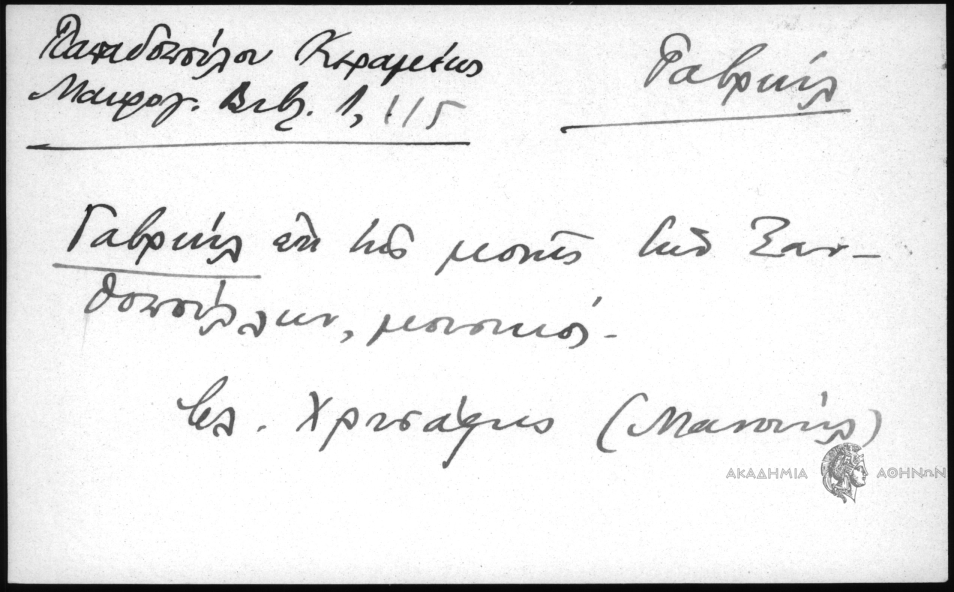 Παπαδοπούλου Κεραμέως
Μαυρογ. Βιβλ. 1, 115
Γαβριήλ
Γαβριήλ ἐκ τῆς μονῆς τῶν Ξαν-
θοπούλων, μουσικός.
βλ. Χρυσάφης (Μανουήλ)
ΑΚΑΔΗΜΙΑ ΑΘΗΝΩΝ